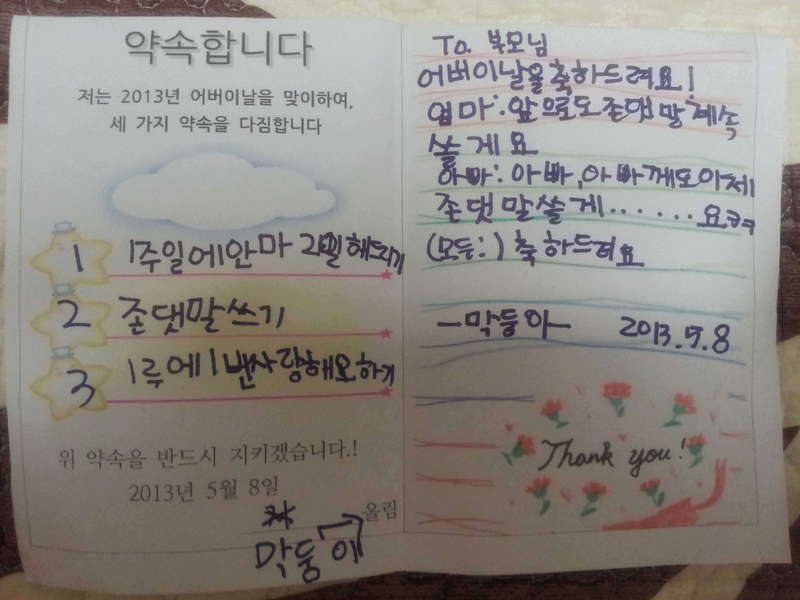 약속합니다
저는 2013년 어버이날을 맞이하여,
세 가지 약속을 다짐합니다
1 1주일에안마 2번 해드리기
2 존댓말쓰기
3 1루에1번사랑해요하기
위 약속을 반드시 지키겠습니다.!
2013년 5월 8일
올림
막둥이
To. 부모님
어버이날을축하드려요!
엄마:앞으로도존댓말계속
쓸게요
아빠:아빠,아빠께도이제
존댓말쓸게......요ㅋㅋ
(모두:)축하드려요
-막둥이- 2013.5.8
Thank you!